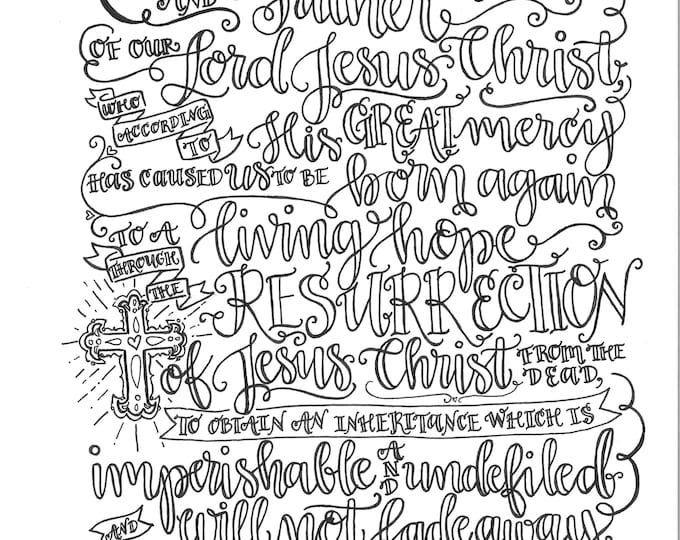 AND Father
OF OUR Lord Jesus Christ,
WHO ACCORDING TO His GREAT mercy
Has CAUSED US TO BE born again
TO A living hope
THROUGH THE RESURRECTION
of Jesus Christ FROM THE DEAD,
TO OBTAIN AN INHERITANCE WHICH IS
imperishable AND undefiled
AND will not fade away